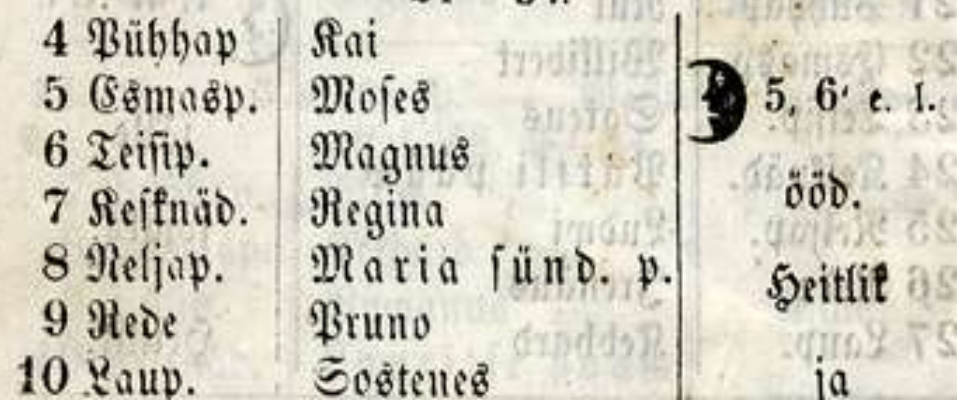 4 Pühhap Kai
5 Esmasp. Moses 5, 6' e. l.
6 Teisip. Magnus
7 Kesknäd. Regina ööd.
8 Neljap. Maria sünd. p. Heitlik
9 Rede Pruno
10 Laup. Sostenes ja